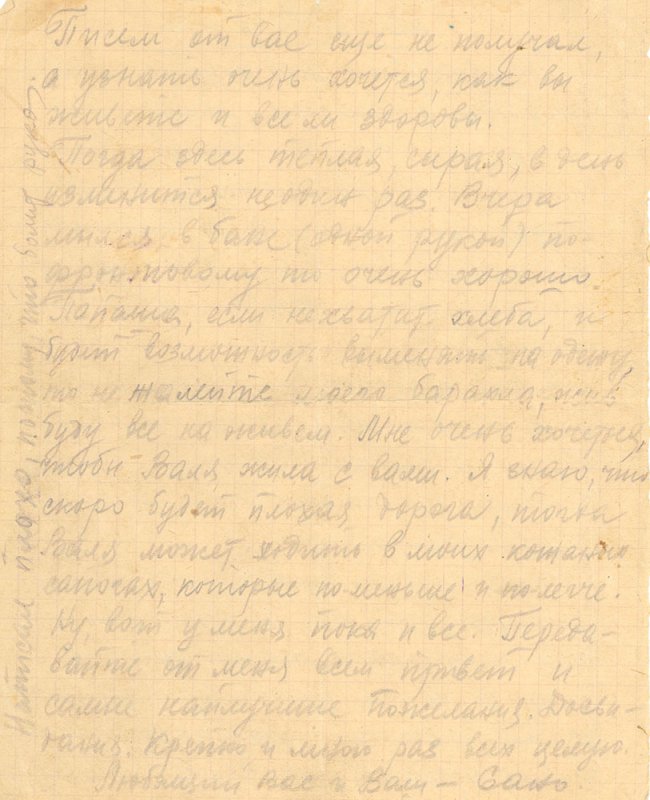 Писем от вас еще не получал,
а узнать очень хочется, как вы
живете и все ли здоровы.
Погода здесь теплая, сырая, в день
изменится не один раз. Вчера
мылся в бане (одной рукой) по-
фронтовому то очень хорошо.
Папаша, если не хватит хлеба, и
будет возможность выменять на одежу,
то не жалейте моего барахла,
буду все наживем. Мне очень хочется,
чтобы Валя жила с вами. Я знаю, что
скоро будет плохая дорога, тогда
Валя может ходить в моих кожаных
сапогах, которые поменьше и полегче.
Ну, вот у меня пока и все. Переда-
вайте от меня всем привет и
самые наилучшие пожелания. Досви-
дания. Крепко и много раз всех целую.
Любящий вас и Валю - Сано.
Написал плохо, потому что болит рука.